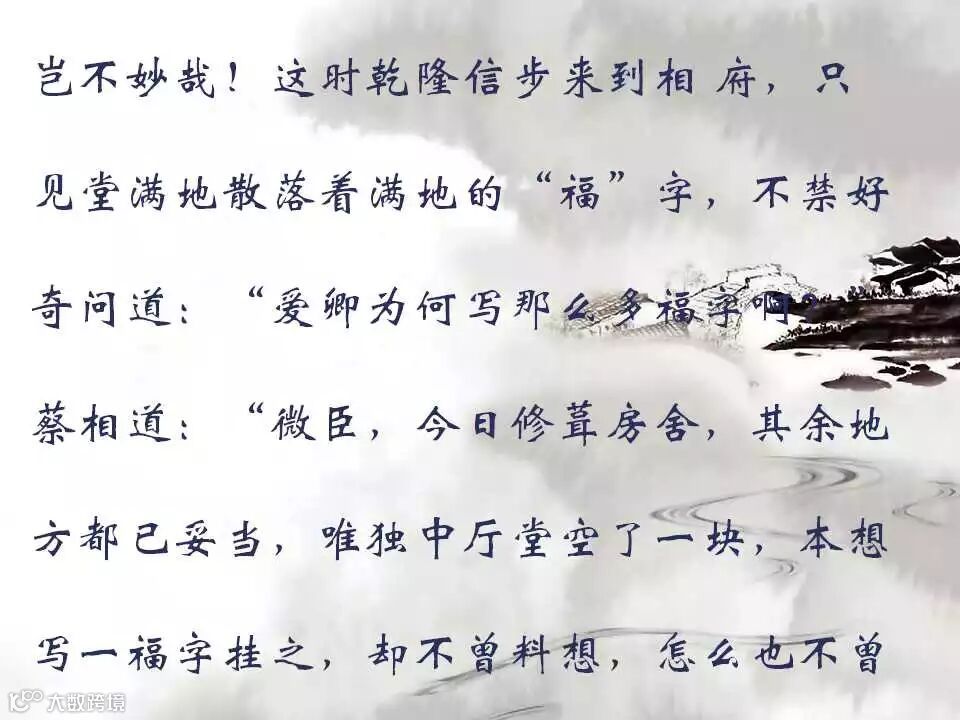 岂不妙哉！这时乾隆信步来到相 府，只
见堂满地散落着满地的“福”字，不禁好
奇问道：“爱卿为何写那么多福字啊？
蔡相道：“微臣，今日修葺房舍，其余地
方都已妥当，唯独中厅堂空了一块，本想
写一福字挂之，却不曾料想，怎么也不曾
大数跨境